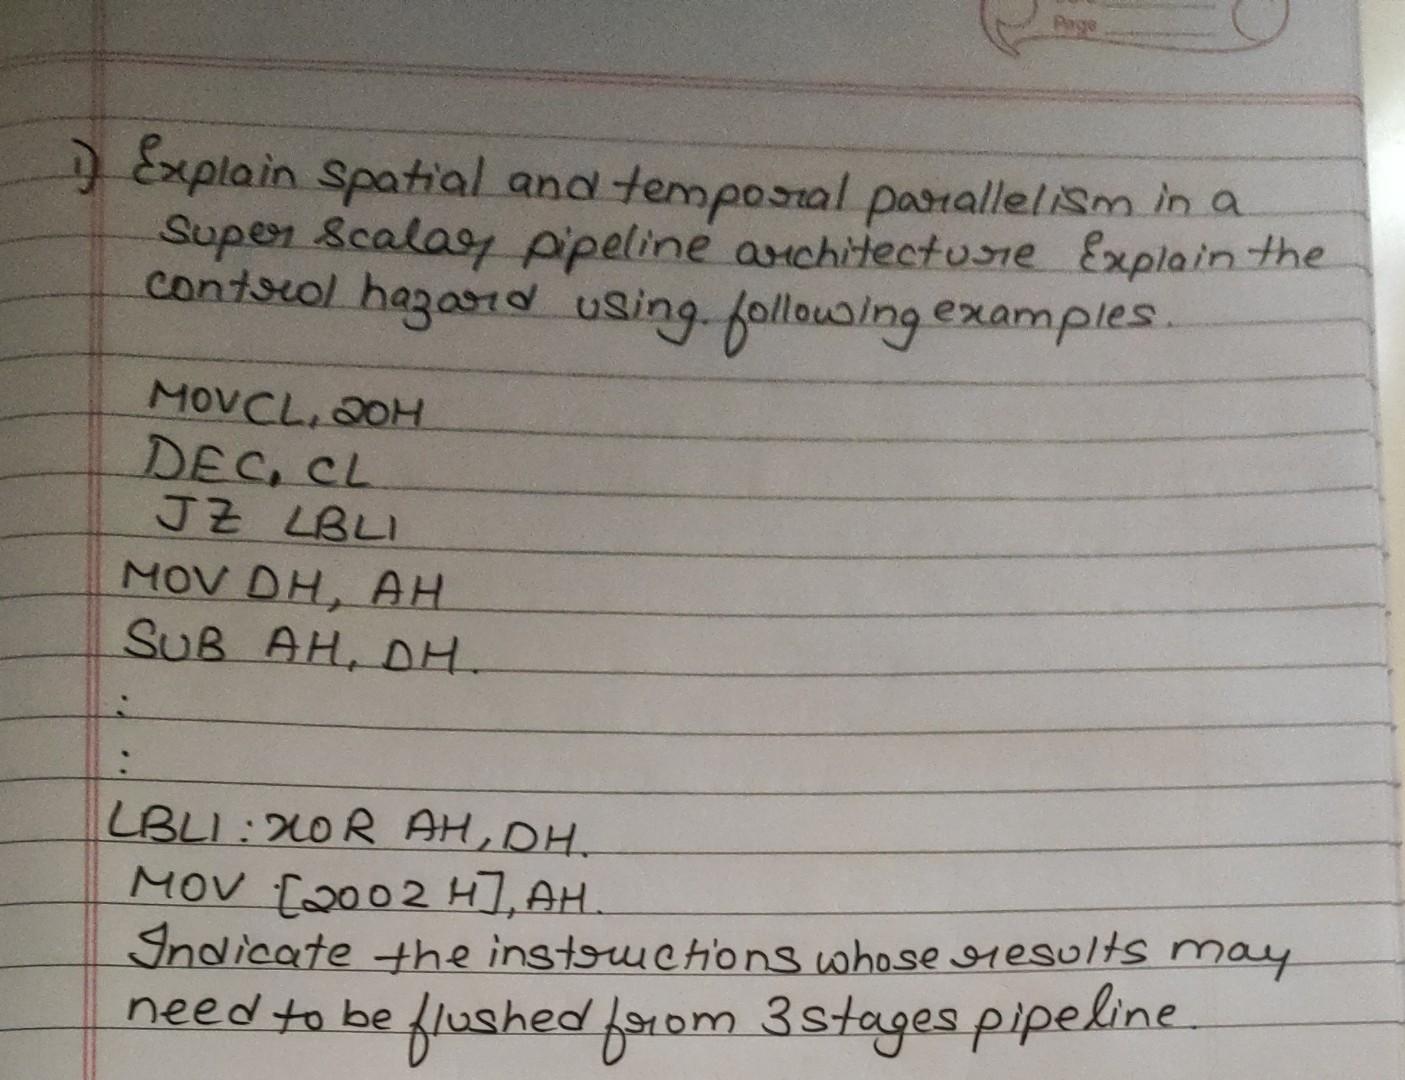 Page
1) Explain spatial and temporal parallelism in a
Super Scalar pipeline architecture Explain the
control hazard using following examples.
MOV CL, 20H
DEC, CL
JZ LBL1
MOV DH, AH
SUB AH, DH.
:
:
LBL1: XOR AH, DH.
MOV [2002 H], AH.
Indicate the instructions whose results may
need to be flushed from 3 stages pipeline.